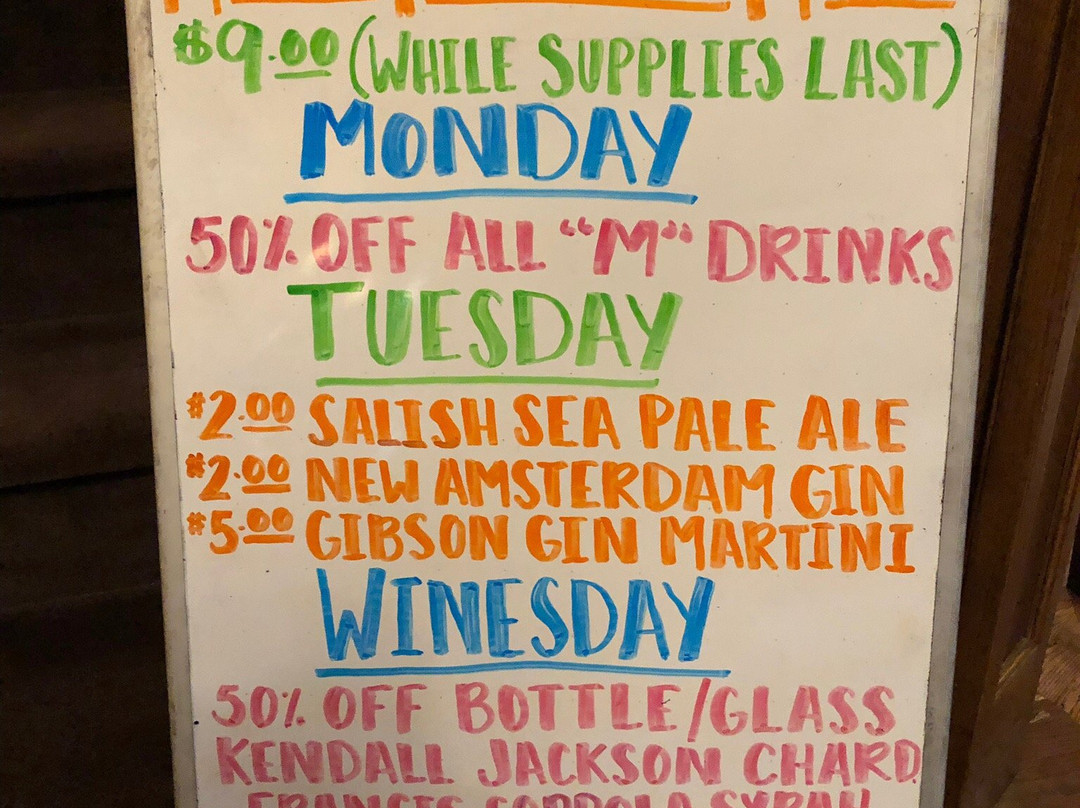 $9.00 (WHILE SUPPLIES LAST)
MONDAY
50% OFF ALL "M" DRINKS
TUESDAY
$2.00 SALISH SEA PALE ALE
$2.00 NEW AMSTERDAM GIN
$5.00 GIBSON GIN MARTINI
WINESDAY
50% OFF BOTTLE/GLASS
KENDALL JACKSON CHARD
FRANCIS COPPOLA SYRAH